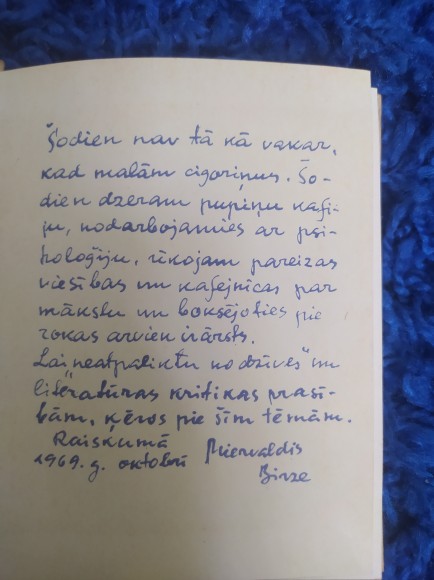 Šodien nav tā kā vakar,
kad malām cigoriņus. Šo-
dien dzeram pupiņu kafi-
ju, nodarbojamies ar psi-
holoģiju, rīkojam pareizas
viesības un kafejnīcas par
mākslu un boksējoties pie
rokas arvien ir ārsts.
Lai neatpaliktu no dzīves" un
literatūras kritikas prasī-
bām, ķēros pie šīm tēmām.
Raiskumā Miervaldis
1969. g. oktobrī Birze